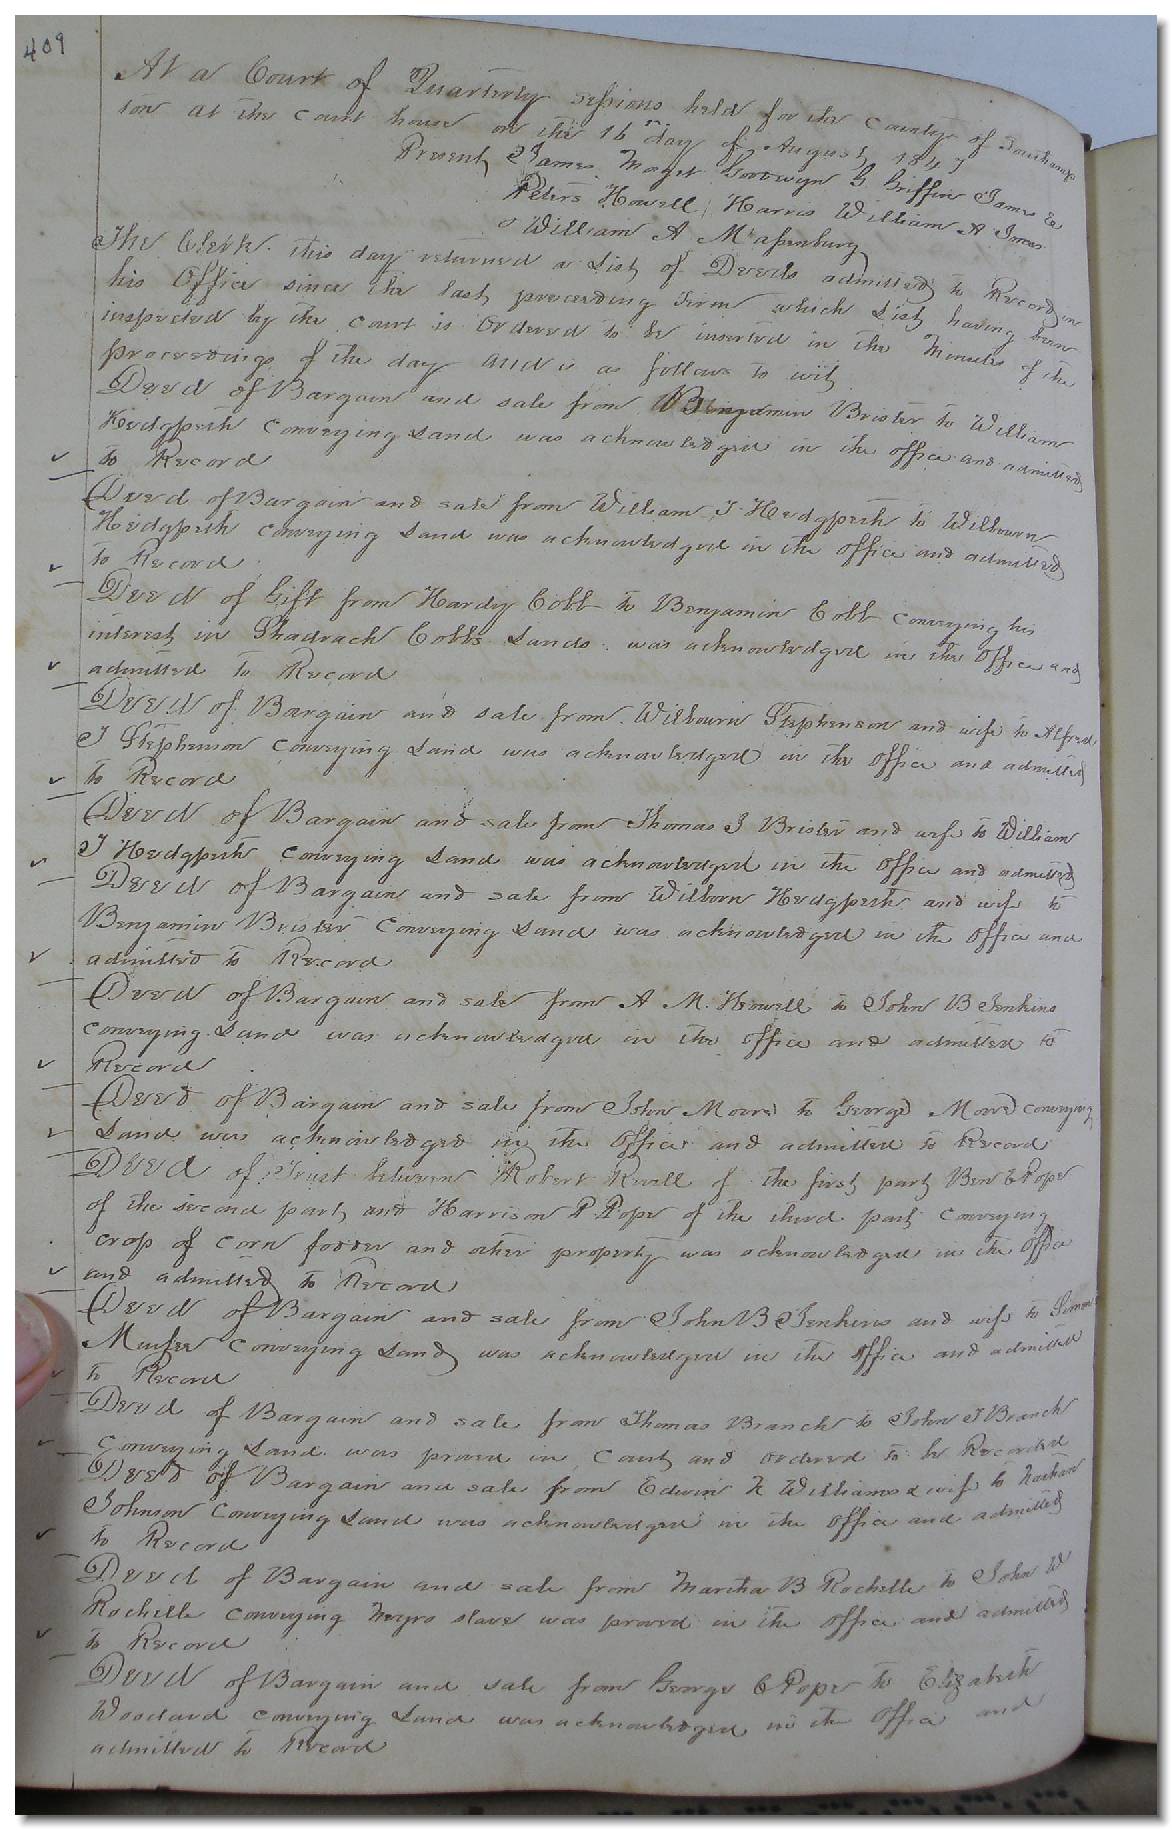 409
At a Court of Quarterly sessions held for the County of Southamp
ton at the Court house on the 16th day of August 1847
Present, James Maget Goodwyn G Griffin James &
Peters Howell, Harris William A Jones
& William A
The Clerk this day returned a List of Deeds admitted to Record in
his Office since the last preceeding Term which List having been
inspected by the Court is Ordered to be inserted in the Minutes of the
proceedings of the day and is as follows to wit
Deed of Bargain and sale from Benjamin Brister to William
Hedgpeth Conveying Land was acknowledged in the office and admitted
to Record
Deed of Bargain and sale from William J Hedgpeth to Wilbourn
Hedgpeth conveying Land was acknowledged in the office and admitted
to Record
Deed of Gift from Hardy Cobb to Benjamin Cobb conveying his
interest in Shadrach Cobbs Lands was acknowledged in the Office and
admitted to Record
Deed of Bargain and sale from Wilbourn Stephenson and wife to Alfred
J Stephenson conveying Land was acknowledged in the office and admitted
to Record
Deed of Bargain and sale from Thomas J Brister and wife to William
J Hedgpeth conveying Land was acknowledged in the office and admitted
Deed of Bargain and sale from Wilborn Hedgpeth and wife to
Benjamin Brister Conveying Land was acknowledged in the office and
admitted to Record
Deed of Bargain and sale from A M. Howell to John B Jenkins
conveying Land was acknowledged in the office and admitted to
Record
Deed of Bargain and sale from John Moore to George Moore conveying
Land was acknowledged in the Office and admitted to Record
Deed of Trust between Robert Ruell of the first part Ben E Pope
of the second part and Harrison P Pope of the third part conveying
crop of corn fodder and other property was acknowledged in the Office
and admitted to Record
Deed of Bargain and sale from John B Jenkins and wife to
conveying Land was acknowledged in the office and admitted
to Record
Deed of Bargain and sale from Thomas Branch to John J Branch
Conveying Land was proved in Court and ordered to be Recorded
Deed of Bargain and sale from Edwin R Williams & wife to Nathan
Johnson conveying Land was acknowledged in the office and admitted
to Record
Deed of Bargain and sale from Martha B Rochelle to John W
Rochelle conveying Negro slave was proved in the office and admitted
to Record
Deed of Bargain and sale from George E Pope to Elizabeth
Woodard conveying Land was acknowledged in the office and
admitted to Record